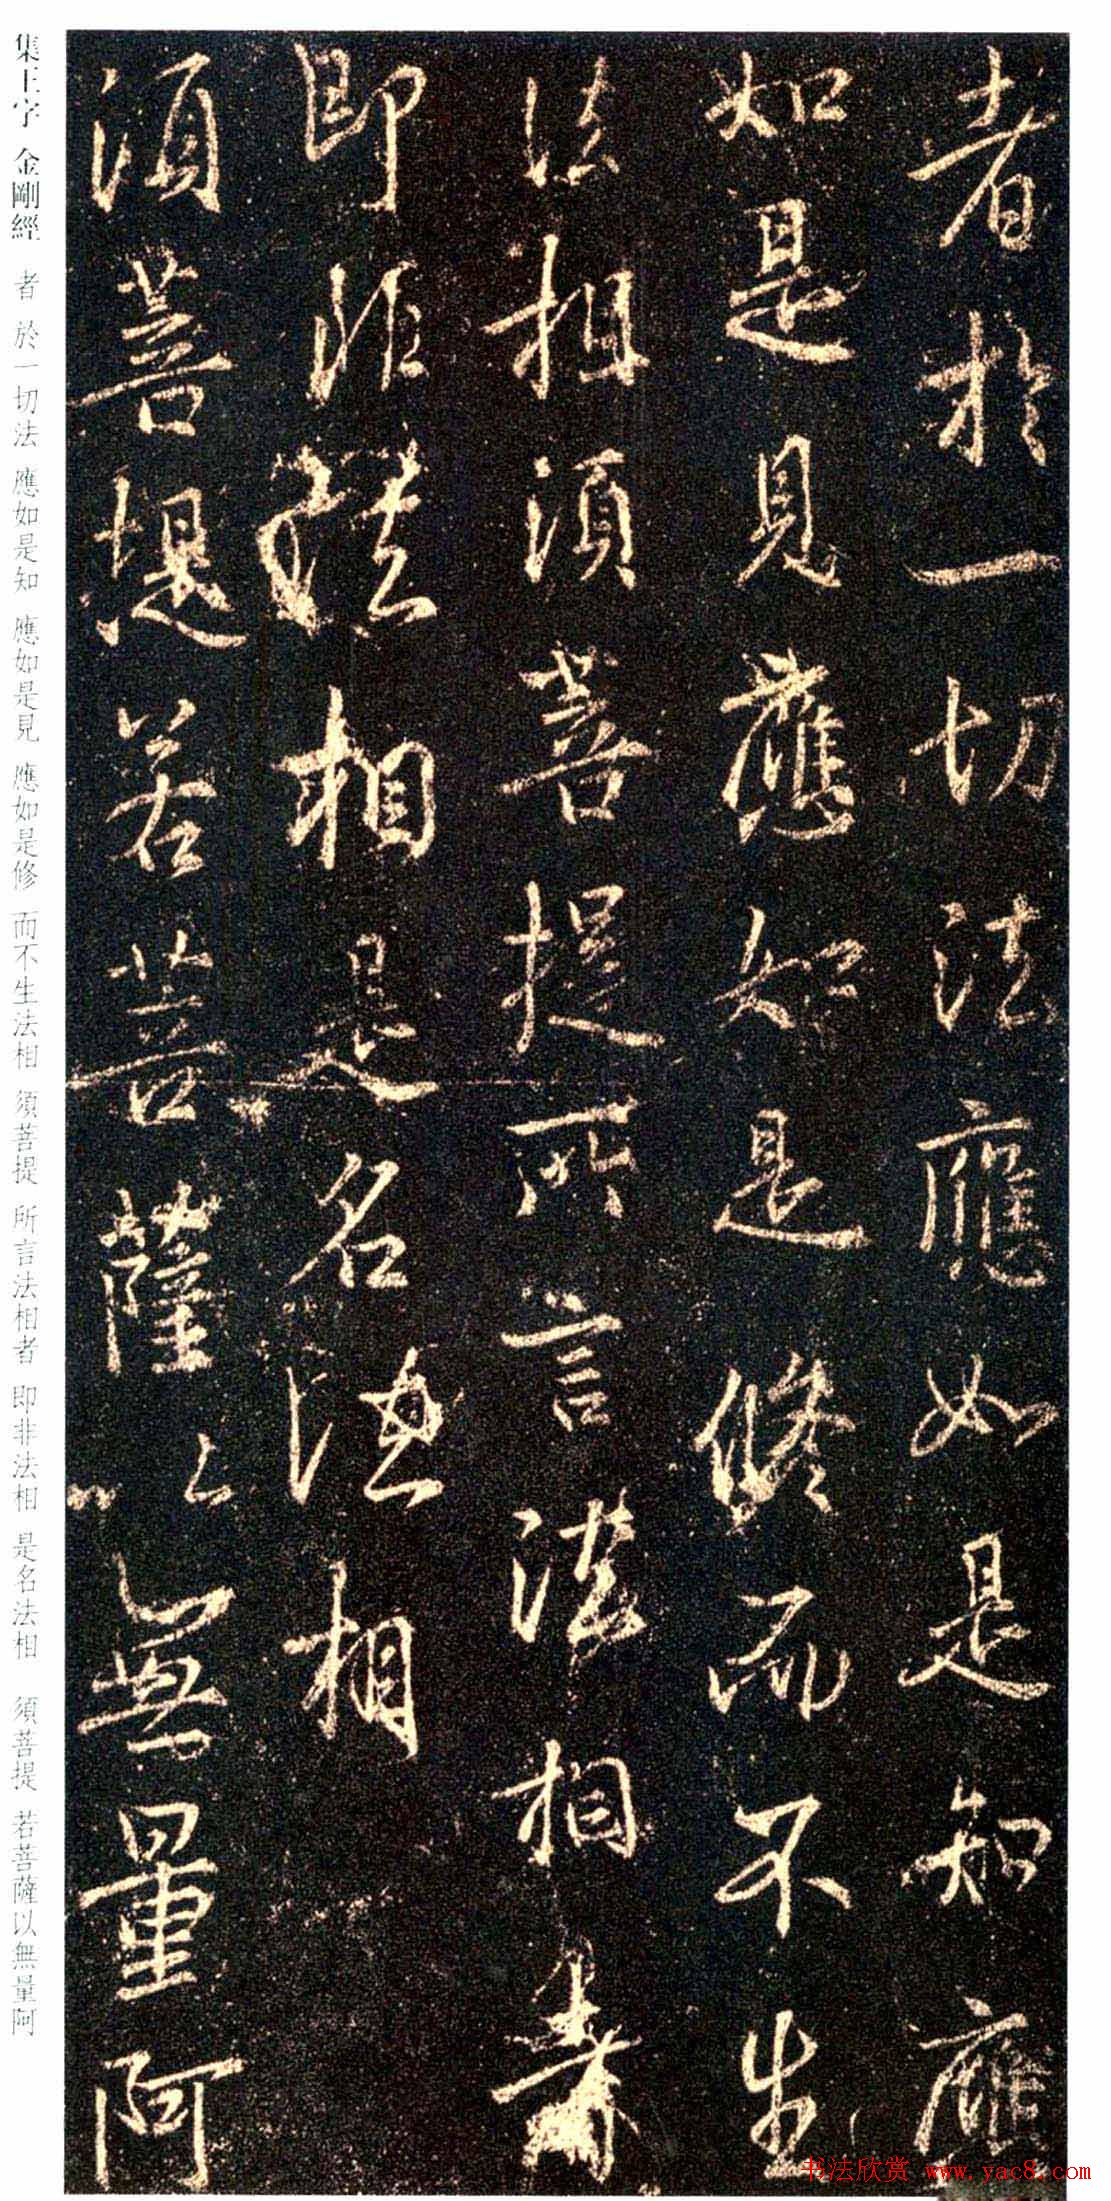 者於一切法應如是知應
如是見應如是修而不生
法相須菩提所言法相者
即非法相是名法相
須菩提若菩薩以無量阿
集王字 金剛經 者 於一切法 應如是知 應如是見 應如是修 而不生法相 須菩提 所言法相者 即非法相 是名法相 須菩提 若菩薩以無量阿
书法欣赏 www.yac8.com